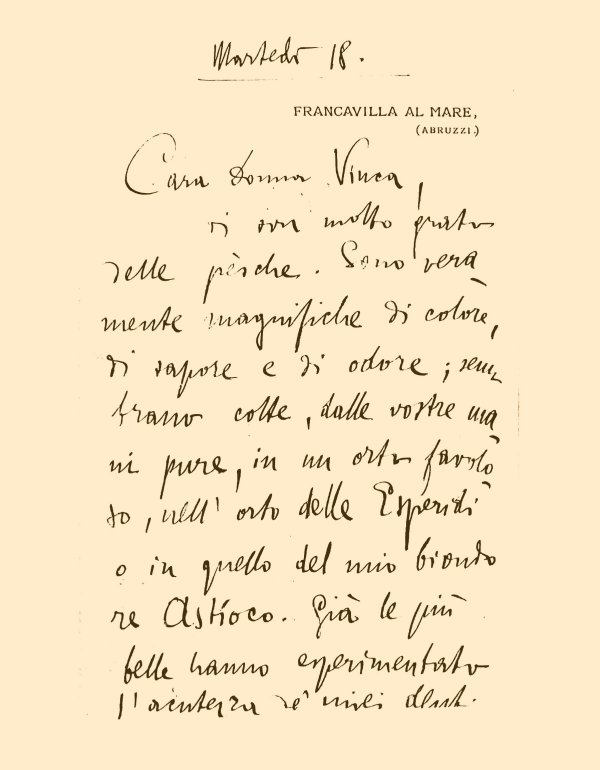 Martedì 18.
FRANCAVILLA AL MARE,
(ABRUZZI.)
Cara Donna Vinca,
vi son molto grato
delle pèsche. Sono vera
mente magnifiche di colore,
di sapore e di odore; sem
brano colte, dalle vostre ma
ni pure, in un orto favolo
so, nell' orto delle Esperidi
o in quello del mio biondo
re Astíoco. Già le più
belle hanno esperimentato
l'acutezza de' miei denti.